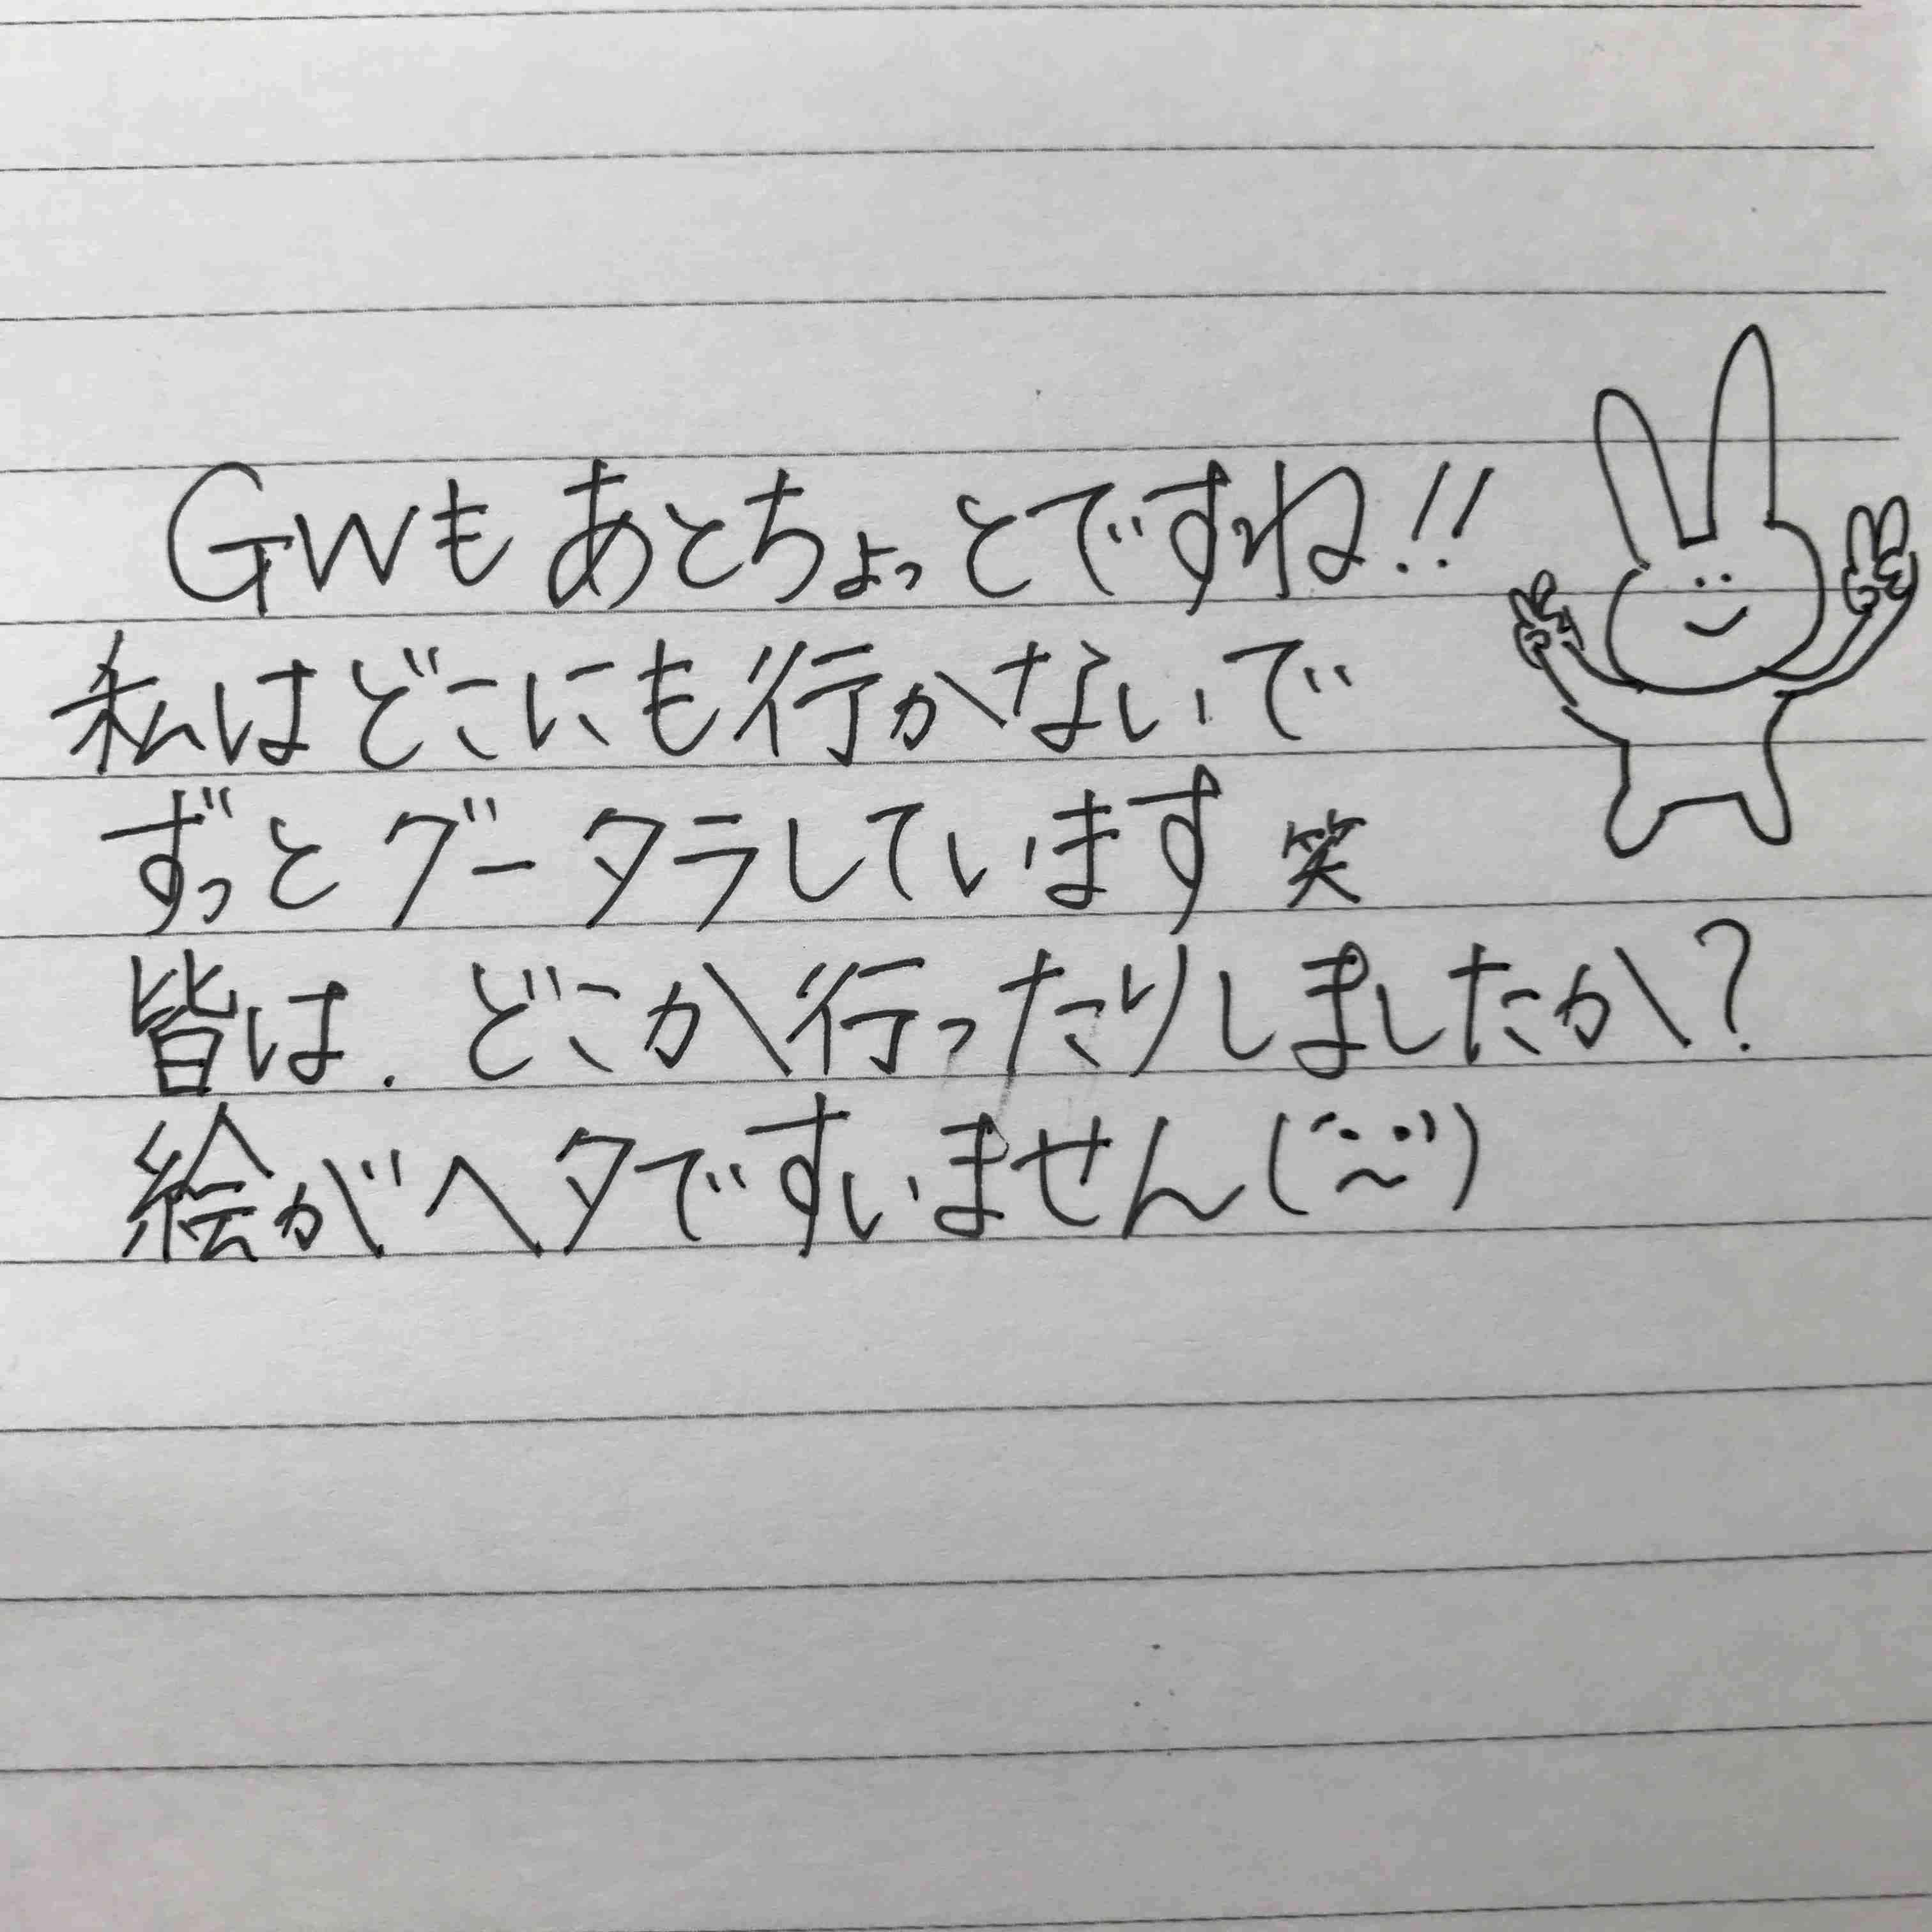 GWもあとちょっとですね!!
私はどこにも行かないで
ずっとグータラしています 笑
皆は. どこか行ったりしましたか?
絵がヘタですいません(´~`)